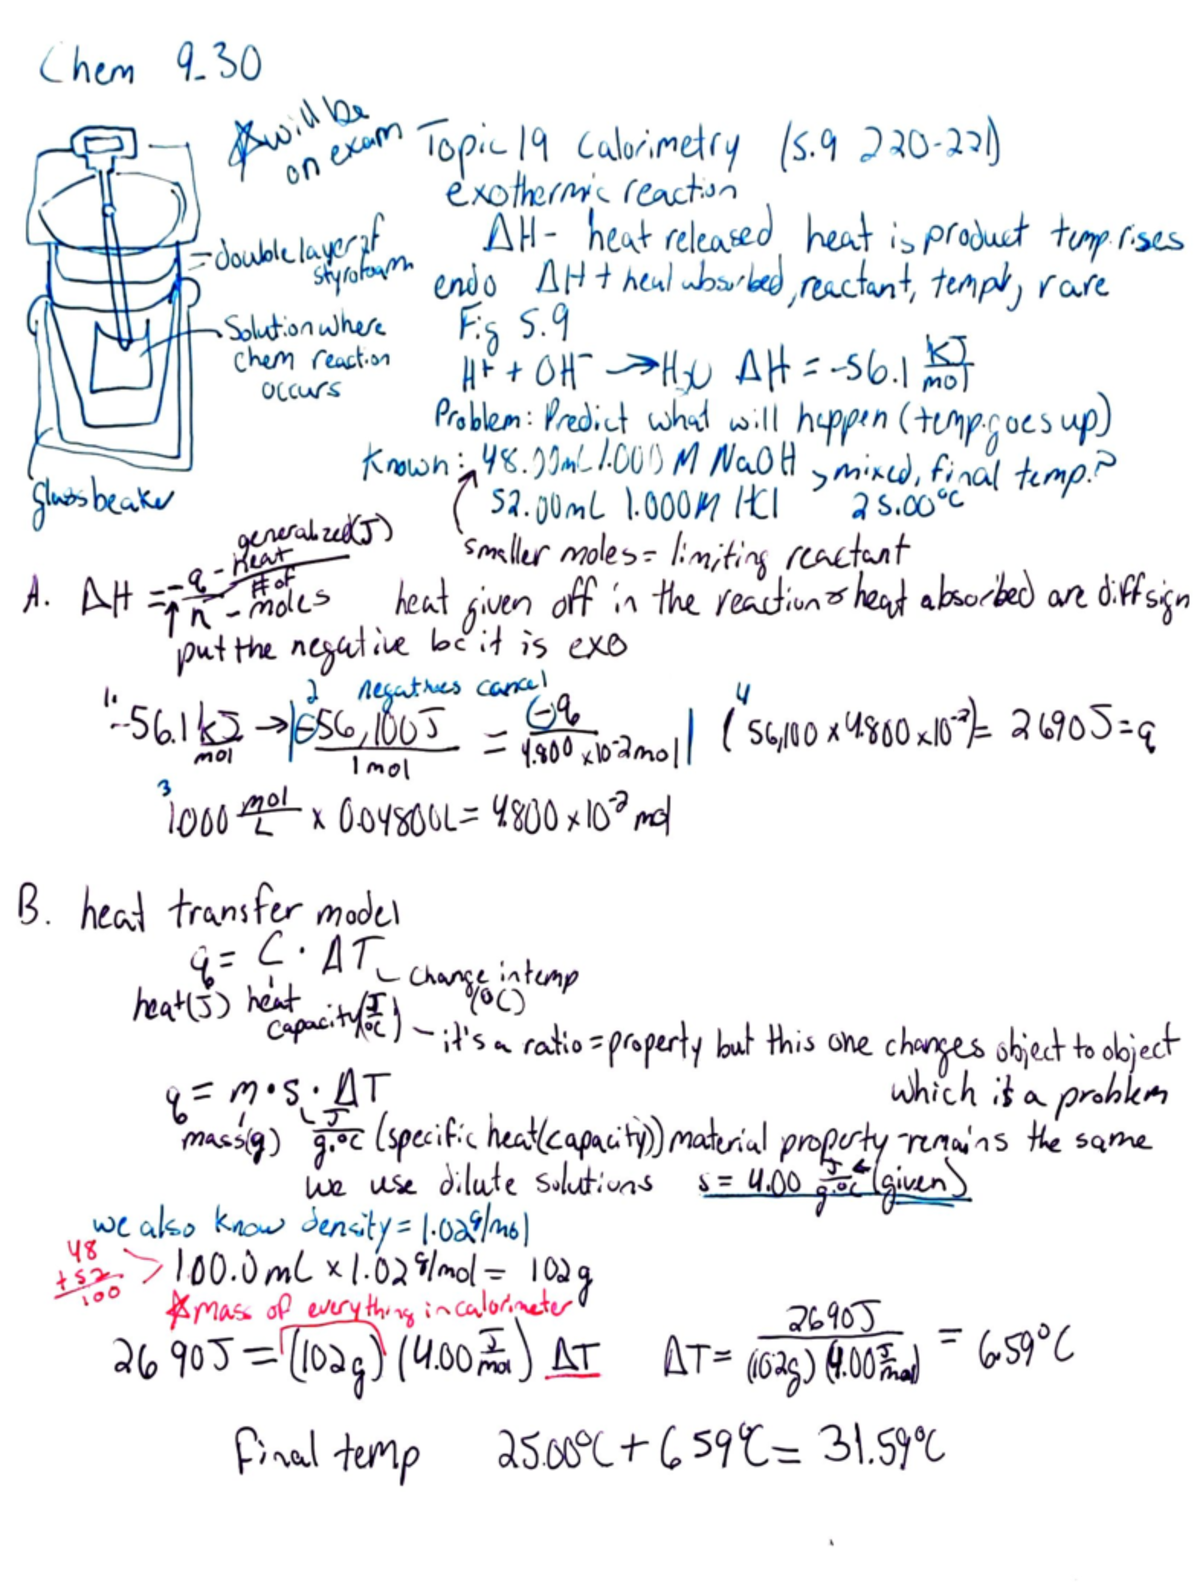 Chem 9-30
☆will be on exam
Topic 19 Calorimetry (5.9 220-221)
exothermic reaction
ΔH- heat released heat is product temp. rises
=double layer of styrofoam
endo ΔH+ heat absorbed, reactant, temp↓, rare
Fig 5.9
Solution where chem reaction occurs
H⁺ + OH⁻ → H₂O ΔH = -56.1 kJ/mol
Problem: Predict what will happen (temp. goes up)
Known: 48.00mL 1.000 M NaOH > mixed, final temp.?
52.00mL 1.000M HCl 25.00°C
glass beaker
smaller moles = limiting reactant
A. ΔH = -q/n
generalized(J)
- heat
# of
- moles
heat given off in the reaction & heat absorbed are diff sign
↑ put the negative bc it is exo
1. 2 negatives cancel 4
-56.1 kJ/mol → |-56,100J/1 mol = -q/4.800 x10⁻² mol| (56,100 x 4.800 x10⁻²)= 2690J = q
3
1.000 mol/L x 0.04800L = 4.800 x 10⁻² mol
B. heat transfer model
q = C · ΔT
- change in temp (°C)
heat(J) heat capacity(J/°C) - it's a ratio = property but this one changes object to object
which is a problem
q = m · s · ΔT
mass(g) J/g·°C (specific heat(capacity)) material property - remains the same
we use dilute solutions s = 4.00 J/g·°C ← (given)
we also know density = 1.02g/mol
48
+52
100
> 100.0mL x 1.02 g/mol = 102g
☆mass of everything in calorimeter
2690J = (102g) (4.00 J/mol) ΔT ΔT = 2690J/(102g) (4.00 J/mol) = 6.59°C
Final temp 25.00°C + 6.59°C = 31.59°C